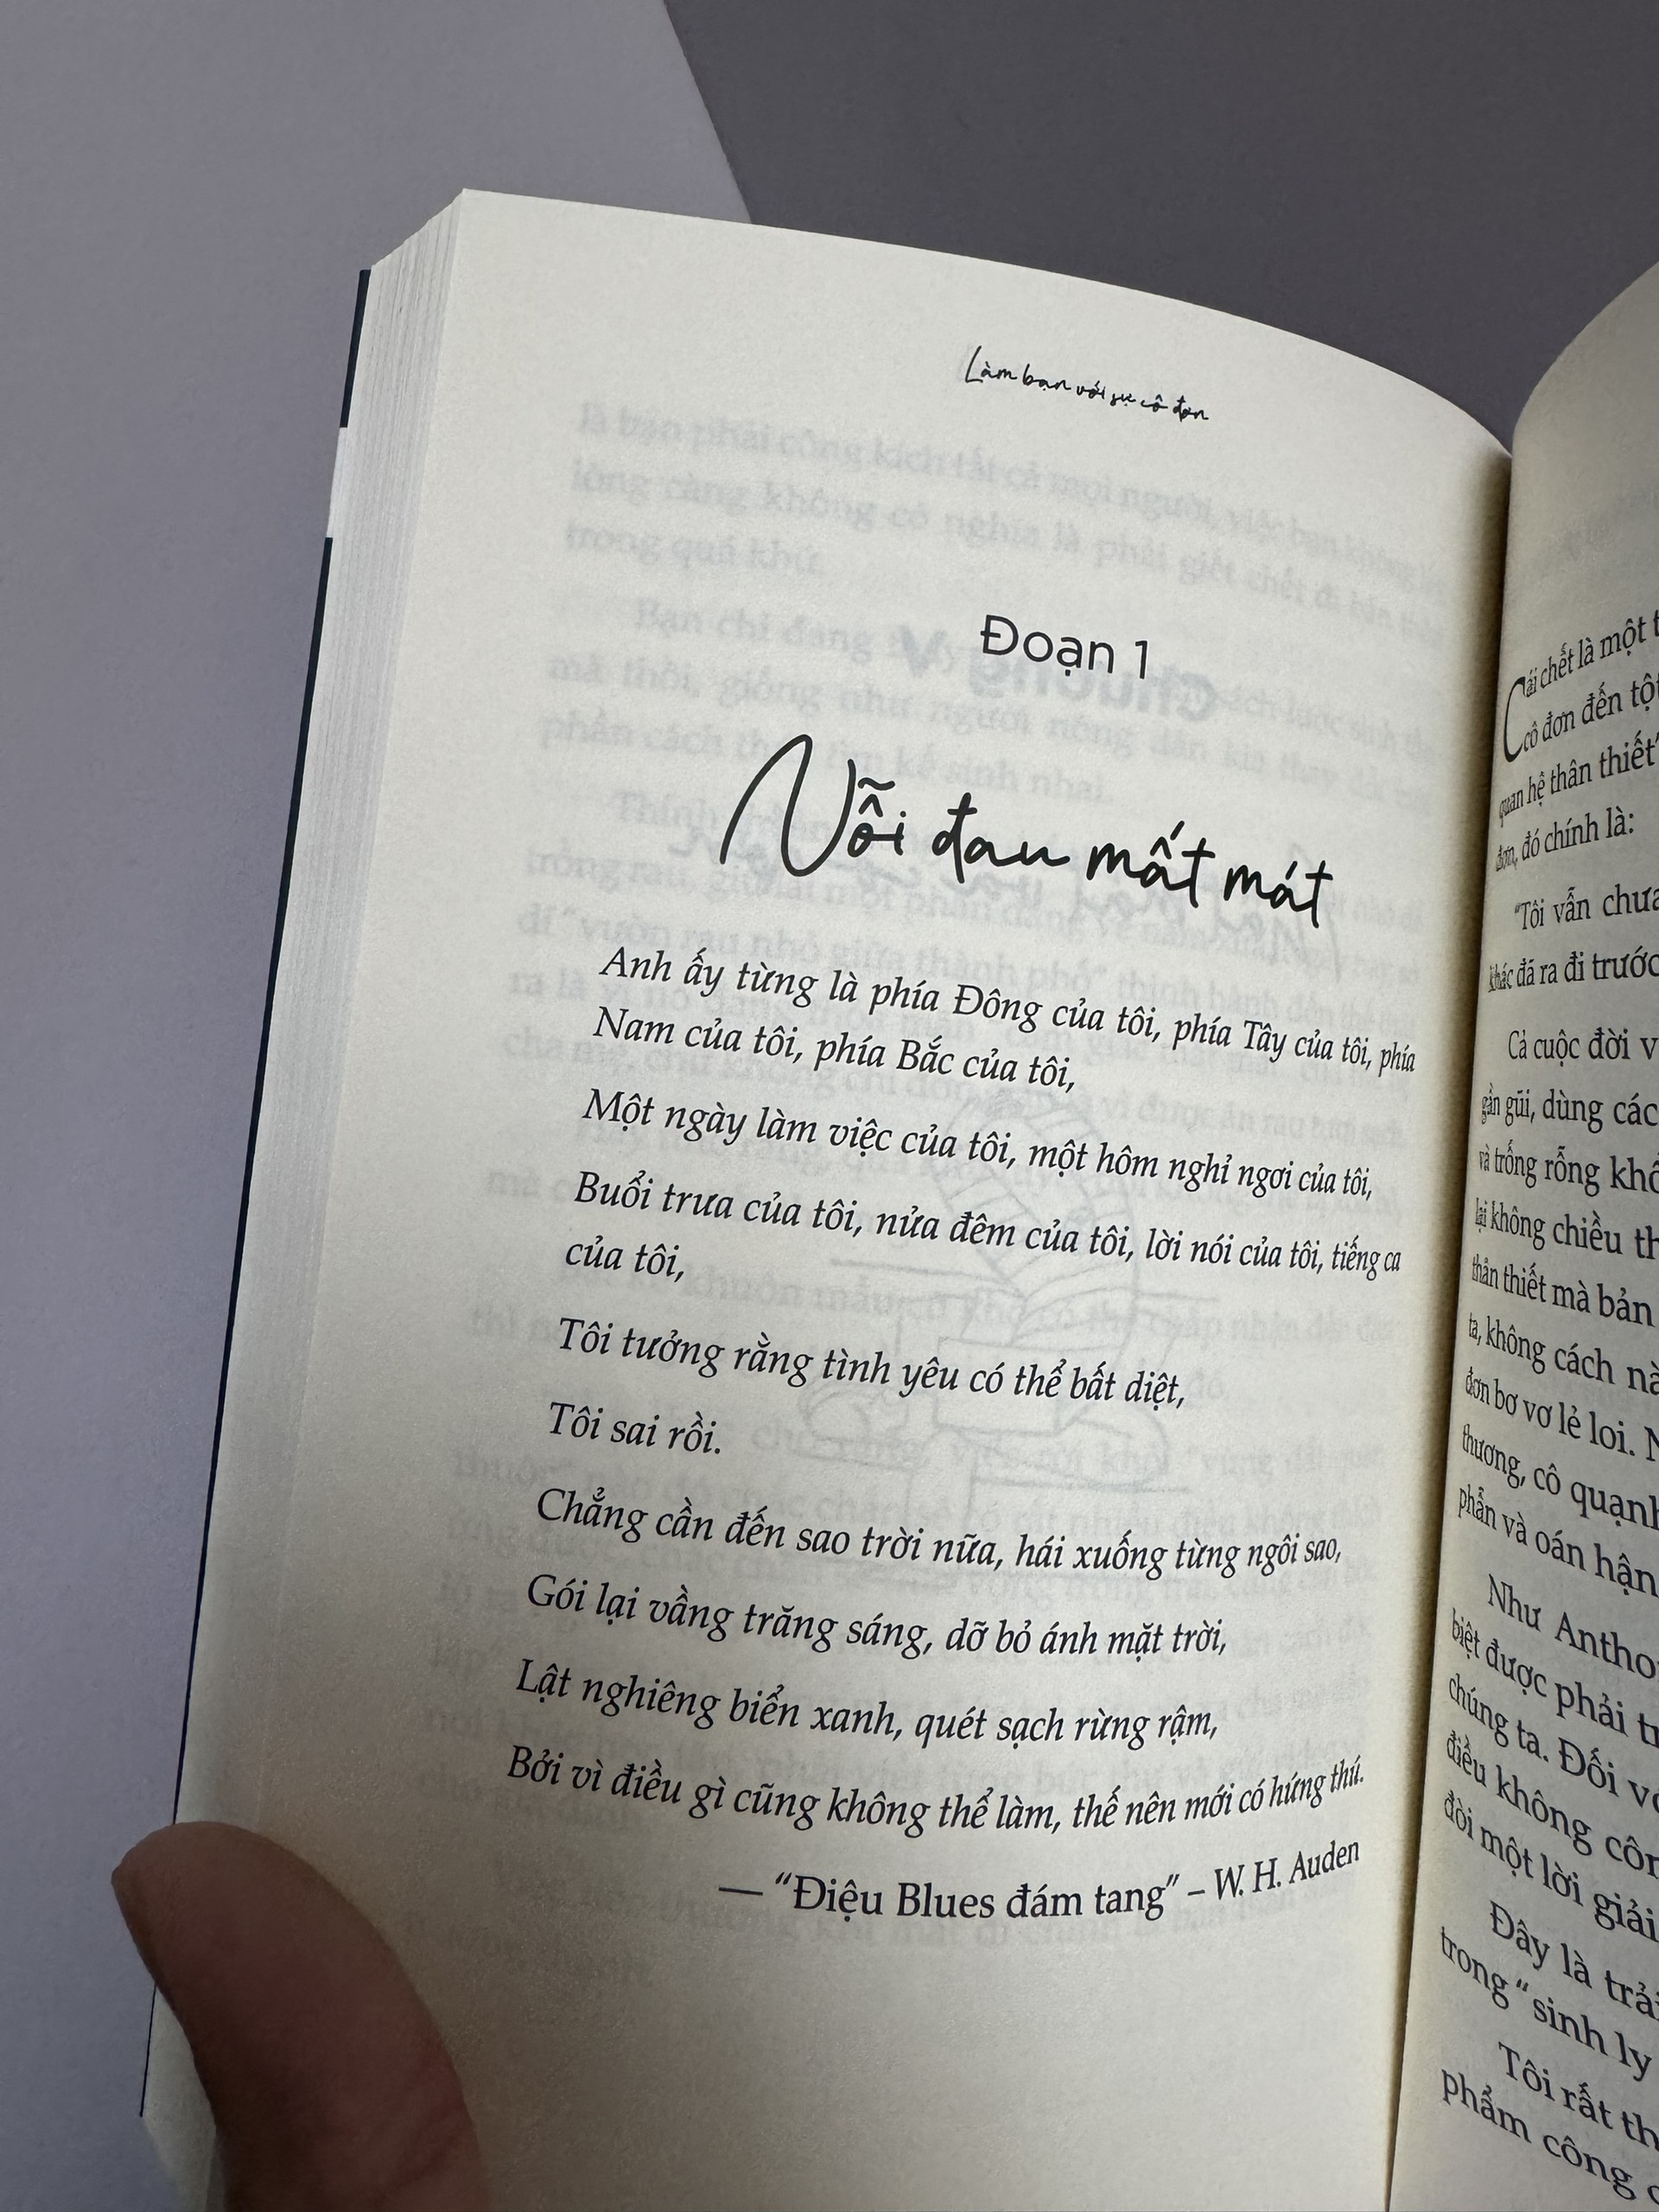 Làm bạn với sự cô đơn
Đoạn 1
Nỗi đau mất mát
Anh ấy từng là phía Đông của tôi, phía Tây của tôi, phía
Nam của tôi, phía Bắc của tôi,
Một ngày làm việc của tôi, một hôm nghỉ ngơi của tôi,
Buổi trưa của tôi, nửa đêm của tôi, lời nói của tôi, tiếng ca
của tôi,
Tôi tưởng rằng tình yêu có thể bất diệt,
Tôi sai rồi.
Chẳng cần đến sao trời nữa, hái xuống từng ngôi sao,
Gói lại vầng trăng sáng, dỡ bỏ ánh mặt trời,
Lật nghiêng biển xanh, quét sạch rừng rậm,
Bởi vì điều gì cũng không thể làm, thế nên mới có hứng thú.
— “Điệu Blues đám tang” – W. H. Auden
Cái chết là một
cô đơn đến
quan hệ thân thiết”
đơn, đó chính là:
“Tôi vẫn chưa
khác đã ra đi trước
Cả cuộc đời
gần gũi, dùng các
và trống rỗng
lại không chiều
thân thiết mà bản
ta, không cách
đơn bơ vơ lẻ loi.
thương, cô quạnh
phẫn và oán hận
Như
biệt được phải
chúng ta. Đối
điều không
đòi một lời giải
Đây là
trong “sinh ly
Tôi rất
phẩm công